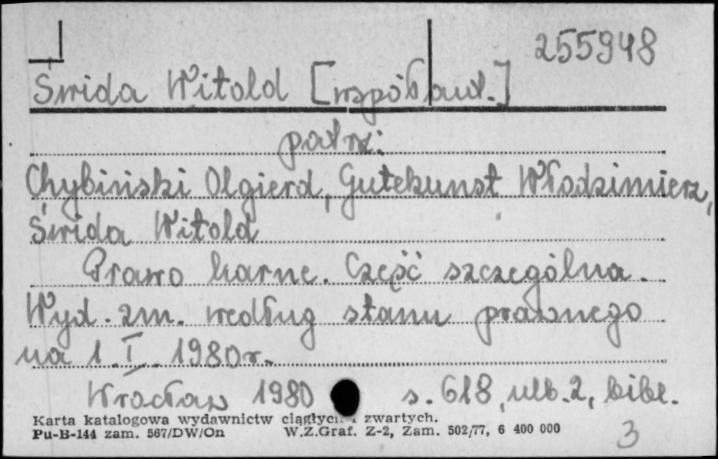 255948
Świda Witold [współaut.]
patrz:
Chybiński Olgierd, Gutekunst Włodzimierz,
Świda Witold
Prawo karne. Część szczególna.
Wyd. zm. według stanu prawnego
na 1. I. 1980r.
Wrocław 1980 s. 618, nlb. 2, bibl.
Karta katalogowa wydawnictw ciągłych i zwartych.
Pu-B-144 zam. 567/DW/On W.Z.Graf. Z-2, Zam. 502/77, 6 400 000
3